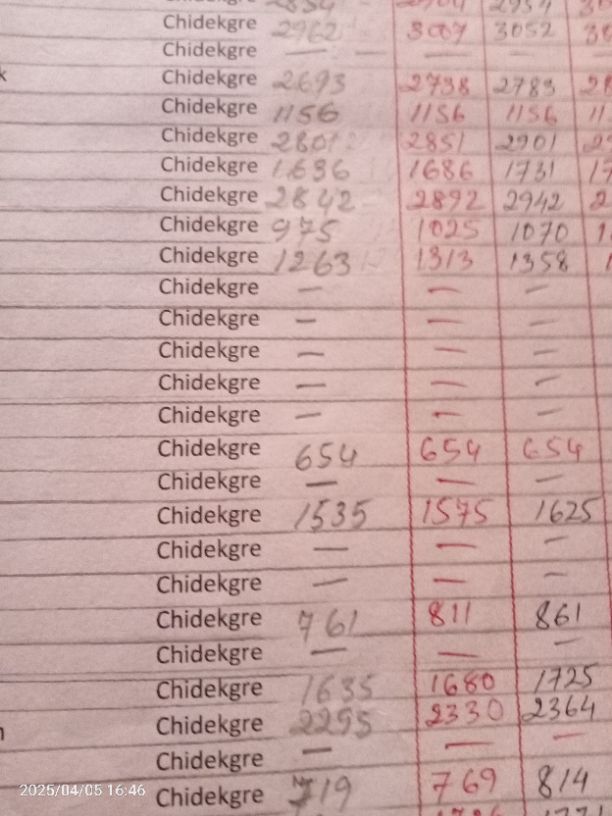 Chidekgre 2962 3007 3052
Chidekgre — — —
Chidekgre 2693 2738 2783
Chidekgre 1156 1156 1156
Chidekgre 2801 2851 2901
Chidekgre 1636 1686 1731
Chidekgre 2842 2892 2942
Chidekgre 975 1025 1070
Chidekgre 1263 1313 1358
Chidekgre — — —
Chidekgre — — —
Chidekgre — — —
Chidekgre — — —
Chidekgre — — —
Chidekgre 654 654 654
Chidekgre — — —
Chidekgre 1535 1575 1625
Chidekgre — — —
Chidekgre — — —
Chidekgre 761 811 861
Chidekgre — — —
Chidekgre 1635 1680 1725
Chidekgre 2295 2330 2364
Chidekgre — — —
Chidekgre 719 769 814
2025/04/05 16:46